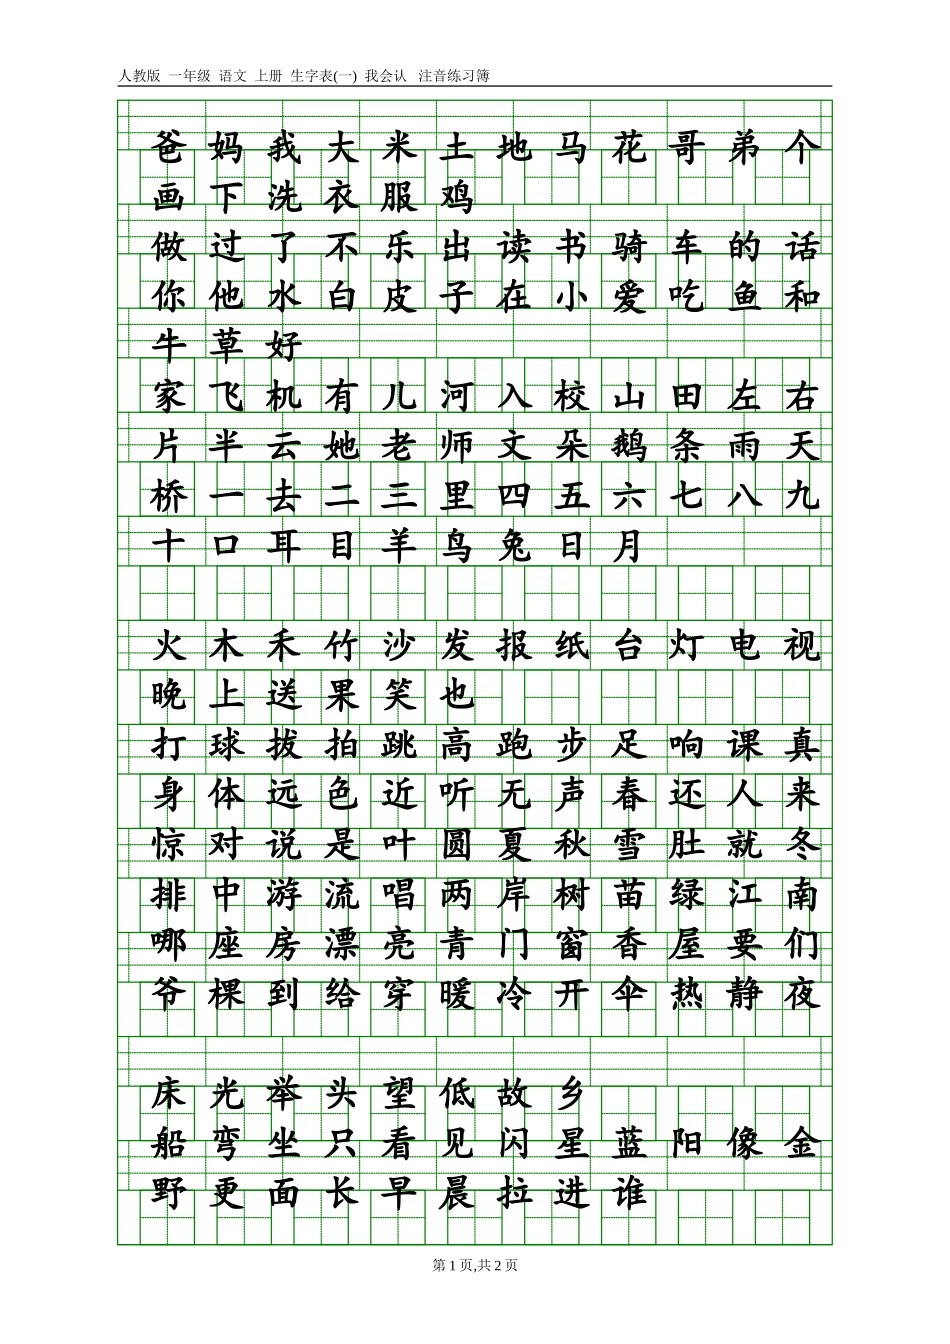 人教版 一年级 语文 上册 生字表(一) 我会认 注音练习簿
爸 妈 我 大 米 土 地 马 花 哥 弟 个
画 下 洗 衣 服 鸡
做 过 了 不 乐 出 读 书 骑 车 的 话
你 他 水 白 皮 子 在 小 爱 吃 鱼 和
牛 草 好
家 飞 机 有 儿 河 入 校 山 田 左 右
片 半 云 她 老 师 文 朵 鹅 条 雨 天
桥 一 去 二 三 里 四 五 六 七 八 九
十 口 耳 目 羊 鸟 兔 日 月
火 木 禾 竹 沙 发 报 纸 台 灯 电 视
晚 上 送 果 笑 也
打 球 拔 拍 跳 高 跑 步 足 响 课 真
身 体 远 色 近 听 无 声 春 还 人 来
惊 对 说 是 叶 圆 夏 秋 雪 肚 就 冬
排 中 游 流 唱 两 岸 树 苗 绿 江 南
哪 座 房 漂 亮 青 门 窗 香 屋 要 们
爷 棵 到 给 穿 暖 冷 开 伞 热 静 夜
床 光 举 头 望 低 故 乡
船 弯 坐 只 看 见 闪 星 蓝 阳 像 金
野 更 面 长 早 晨 拉 进 谁
第 1 页,共 2 页